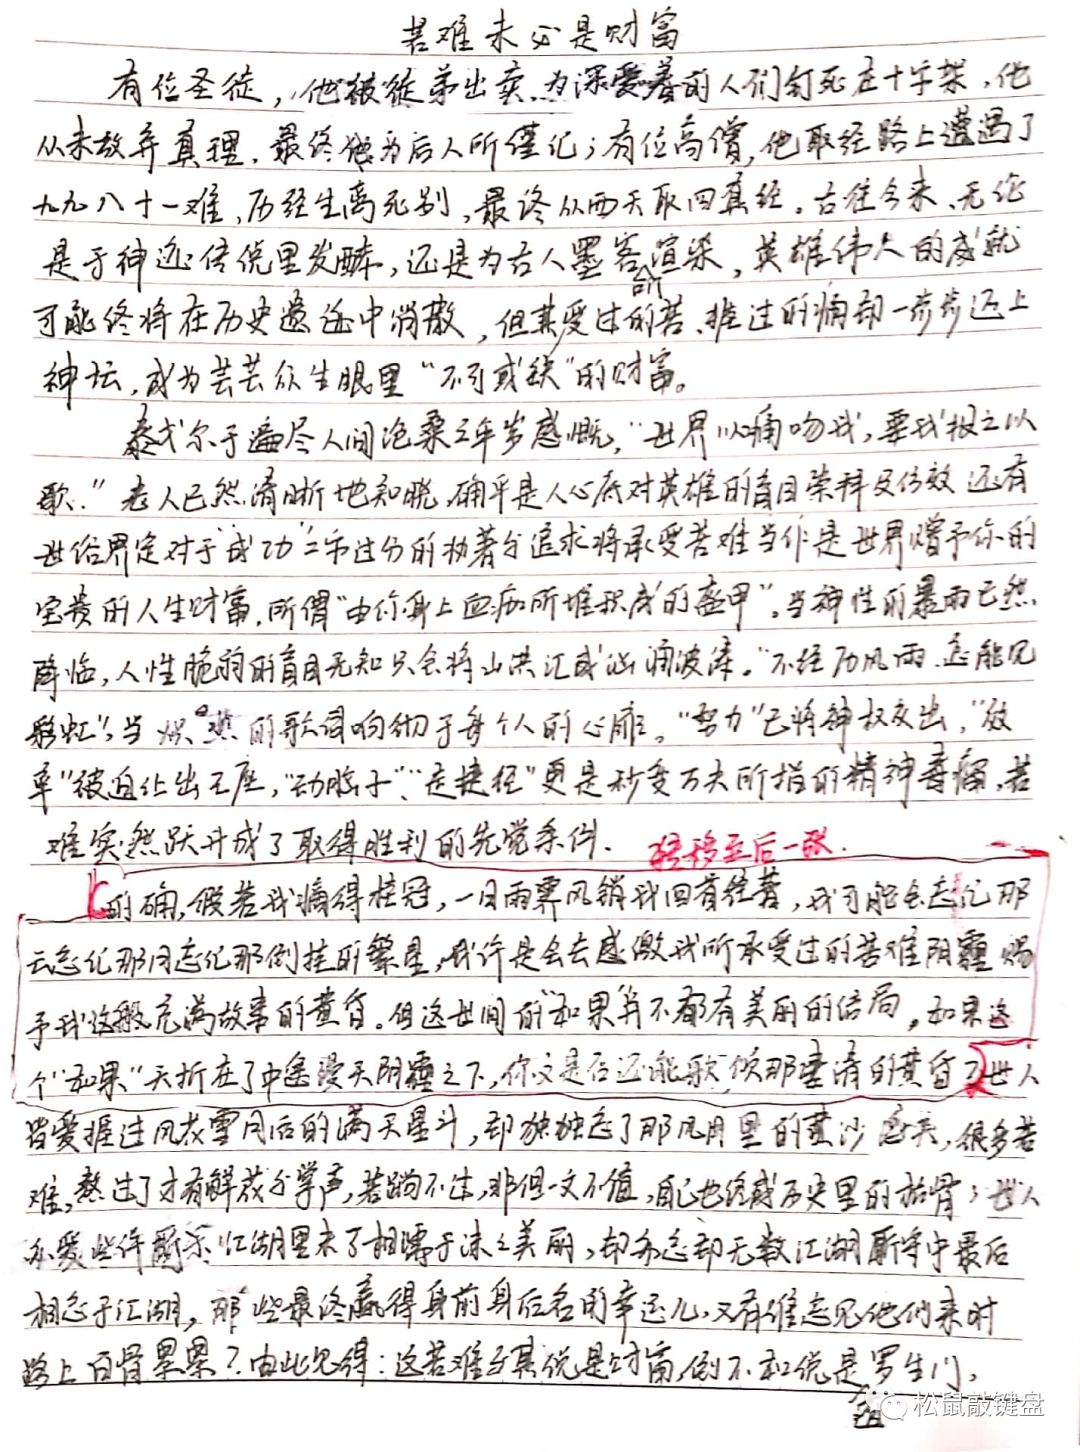 苦难未必是财富
有位圣徒，他被徒弟出卖，为深爱着的人们钉死在十字架，他
从未放弃真理，最终他为后人所谨记；有位高僧，他取经路上遭遇了
九九八十一难，历经生离死别，最终从西天取回真经。古往今来，无论
是于神迹传说里发酵，还是为古人墨客渲染，英雄伟人的成就
所
可能终将在历史遗迹中消散，但其受过的苦、捱过的痛却一步步迈上
神坛，成为芸芸众生眼里“不可或缺”的财富。
泰戈尔于遍尽人间沧桑之年岁感慨，“世界以痛吻我，要我报之以
歌。”老人已然清晰地知晓，确乎是人心底对英雄的盲目崇拜及仿效还有
世俗界定对于“成功”二字过分的执著与追求将承受苦难当作是世界赠予你的
宝贵的人生财富，所谓“由你身上血痂所堆积成的盔甲”。当神性的暴雨已然
降临，人性脆弱的盲目无知只会将山洪汇成汹涌波涛。“不经历风雨，怎能见
彩虹”，当 的歌词响彻于每个人的心扉。“努力”已将神权交出，“效
率”被迫让出王座，“动脑子”、“走捷径”更是秒变万夫所指的精神毒瘤，苦
难突然跃升成了取得胜利的先觉条件。
转移至后一张.
的确，假若我摘得桂冠，一日雨霁风销我回首往昔，我可能会忘记那
云忘记那月忘记那倒挂的繁星，或许是会去感激我所承受过的苦难阴霾赐
予我这般充满故事的黄昏。但这世间的“如果”并不都有美丽的结局，如果这
个“如果”夭折在了中途漫天阴霾之下，你又是否还能歌颂那凄清的黄昏？世人
皆爱捱过风花雪月后的满天星斗，却独独忘了那风月里的黄沙 ，很多苦
难，熬过了才有鲜花与掌声，若蹚不过，非但一文不值，自己也终成历史里的枯骨；世人
亦爱些许 江湖里末了相濡于沫之美丽，却亦忘却无数江湖厮守中最后
相忘于江湖，那些最终赢得身前身后名的幸运儿，又有谁忘见他们来时
路上白骨累累？由此见得：这苦难与其说是财富，倒不如说是罗生门。
松鼠敲键盘